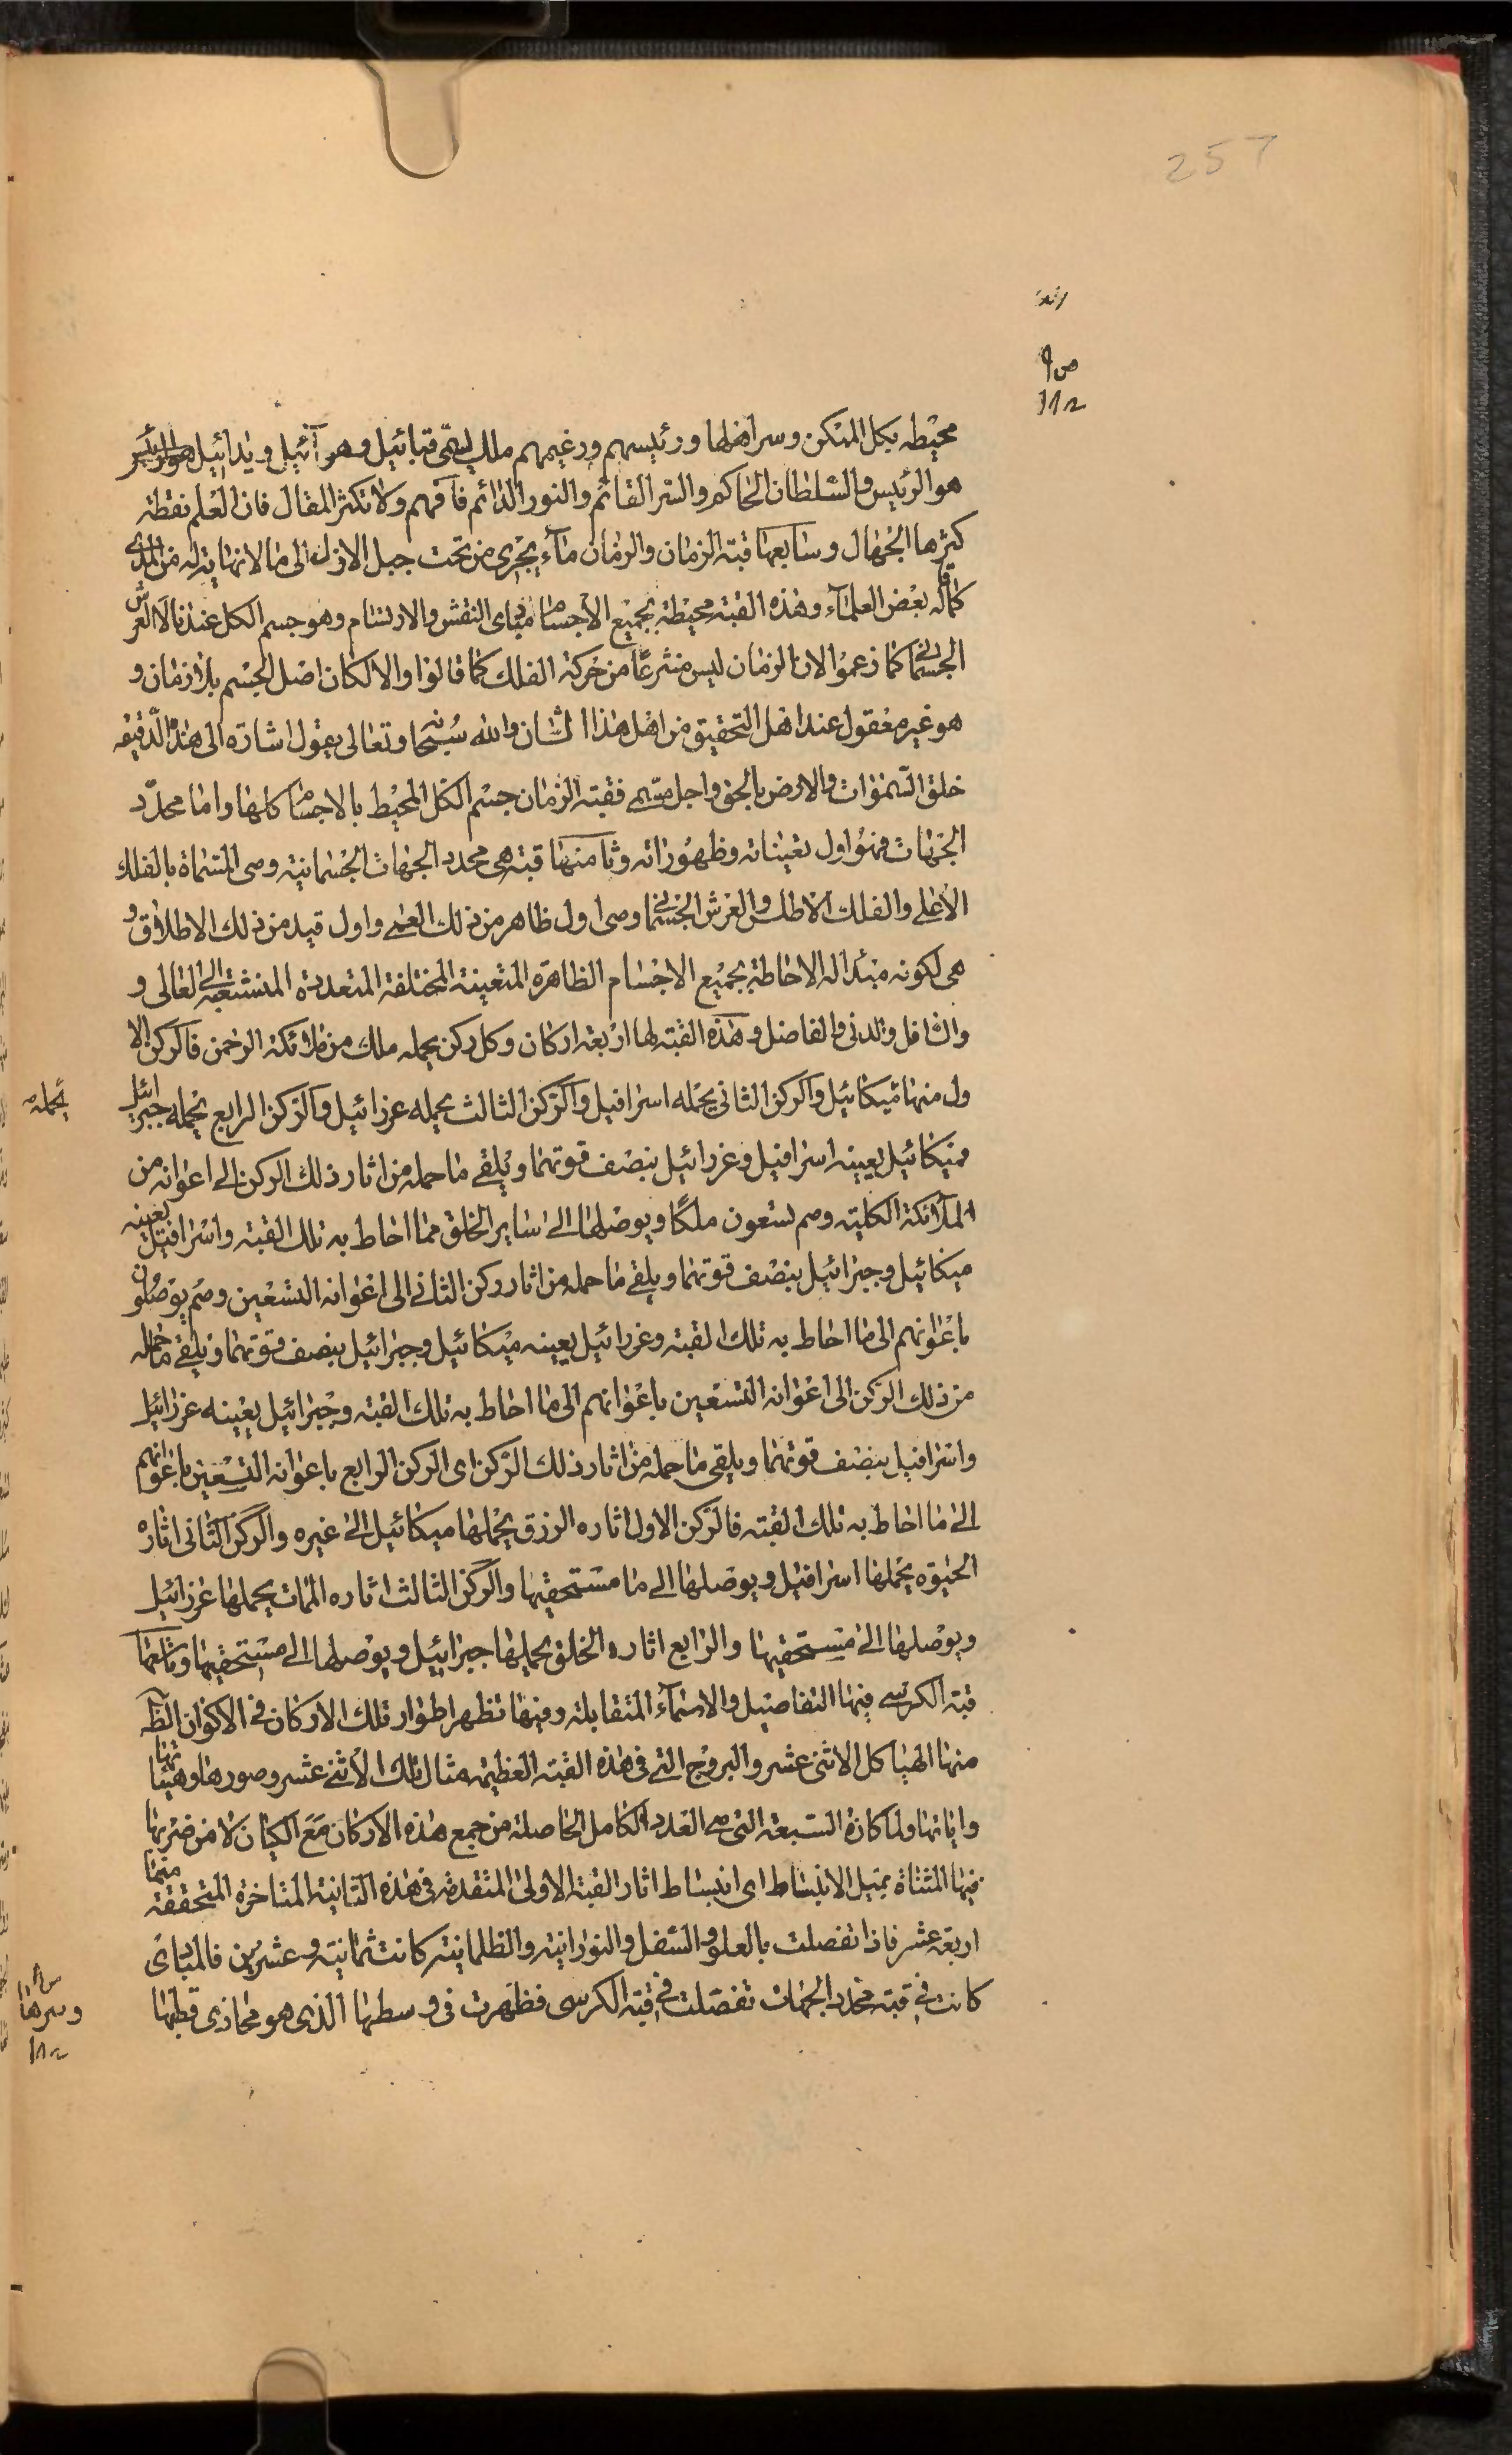 257
محيطه بكل المتكن وسر اهلها ورئيسهم وزعيمهم ملك يسمى قبائيل وهو آئيل ويدائيل هو الرئيس
هو الرئيس والسلطان الحاكم والسر القائم والنور الدائم فافهم ولا تكثر المقال فان العلم نقطة
كثرها الجهال وسابعها قبة الزمان والزمان ماء يجرى من تحت جبل الازل الى ما لا نهاية له من المدى
كما قاله بعض العلماء وهذه القبة محيطة بجميع الاجسام مبادى النقش والارتسام وهو جسم الكل عندنا لا العرش
الجسمانى كما زعموا لان الزمان ليس منتزعا من حركة الفلك كما قالوا والا لكان اصل الجسم بلا زمان و
هو غير معقول عند اهل التحقيق من اهل هذا الشان والله سبحانه وتعالى يقول اشارة الى هذه الدقيقة
خلق السموات والارض بالحق واجل مسمى فقبة الزمان جسم الكل المحيط بالاجسام كلها واما محدد
الجهات فهو اول تعيناته وظهوراته وثامنها قبة هى محدد الجهات الجسمانية وهى المسماة بالفلك
الأعلى والفلك الاطلس والعرش الجسمانى وهى اول ظاهر من ذلك العلى واول قيد من ذلك الاطلاق و
هى لكونه مبدأ له الاحاطة بجميع الاجسام الظاهرة المتعينة المختلفة المتعددة المنشعبة الى العالى و
والسافل والدنى والفاضل وهذه القبة لها اربعة اركان وكل ركن يحمله ملك من ملائكة الرحمن فالركن الا
ول منها ميكائيل والركن الثانى يحمله اسرافيل والركن الثالث يحمله عزرائيل والركن الرابع يحمله جبرائيل
يحمله
فميكائيل يعينه اسرافيل وعزرائيل بنصف قوتهما ويلقى ما حمله من اثار ذلك الركن الى اعوانه من
الملائكة الكلية وهم تسعون ملكًا ويوصلها الى ساير الخلق مما احاط به تلك القبة واسرافيل يعينه
ميكائيل وجبرائيل بنصف قوتهما ويلقى ما حمله من اثار ركن الثانى الى اعوانه التسعين وهم يوصلون
باعوانهم الى ما احاط به تلك القبة وعزرائيل يعينه ميكائيل وجبرائيل بنصف قوتهما ويلقى ما حمله
من ذلك الركن الى اعوانه التسعين باعوانهم الى ما احاط به تلك القبة وجبرائيل يعينه عزرائيل
واسرافيل بنصف قوتهما ويلقى ما حمله من اثار ذلك الركن اى الركن الرابع باعوانه التسعين باعوانهم
الى ما احاط به تلك القبة فالركن الاول اثاره الرزق يحملها ميكائيل الى غيره والركن الثانى اثاره
الحيوة يحملها اسرافيل ويوصلها الى ما مستحقيها والركن الثالث اثاره الممات يحملها عزرائيل
ويوصلها الى مستحقيها والرابع اثاره الخلق يحملها جبرائيل ويوصلها الى مستحقيها وتاسعها
قبة الكرسى فيها التفاصيل والاسماء المتقابلة وفيها تظهر اطوار تلك الاركان فى الاكوان الظا
منها الهياكل الاثنى عشر والبروج التى فى هذه القبة العظيمة مثال تلك الاثنى عشر وصورها وهيئاتها
واياتها ولما كان السبعة التى هى العدد الكامل الحاصلة من جمع هذه الاركان مع الكيان لا من ضربها
فيها المثناة بميل الانبساط اى انبساط اثار القبة الاولى المتقدمة فى هذه الثانية المتاخرة المتحققة منها
اربعة عشر فاذا تفصلت بالعلو والسفل والنورانية والظلمانية كانت ثمانية وعشرين فالمبادى
كانت فى قبة محدد الجهات تفصلت فى قبة الكرسى فظهرت فى وسطها الذى هو محاذى قطبها
وسرها